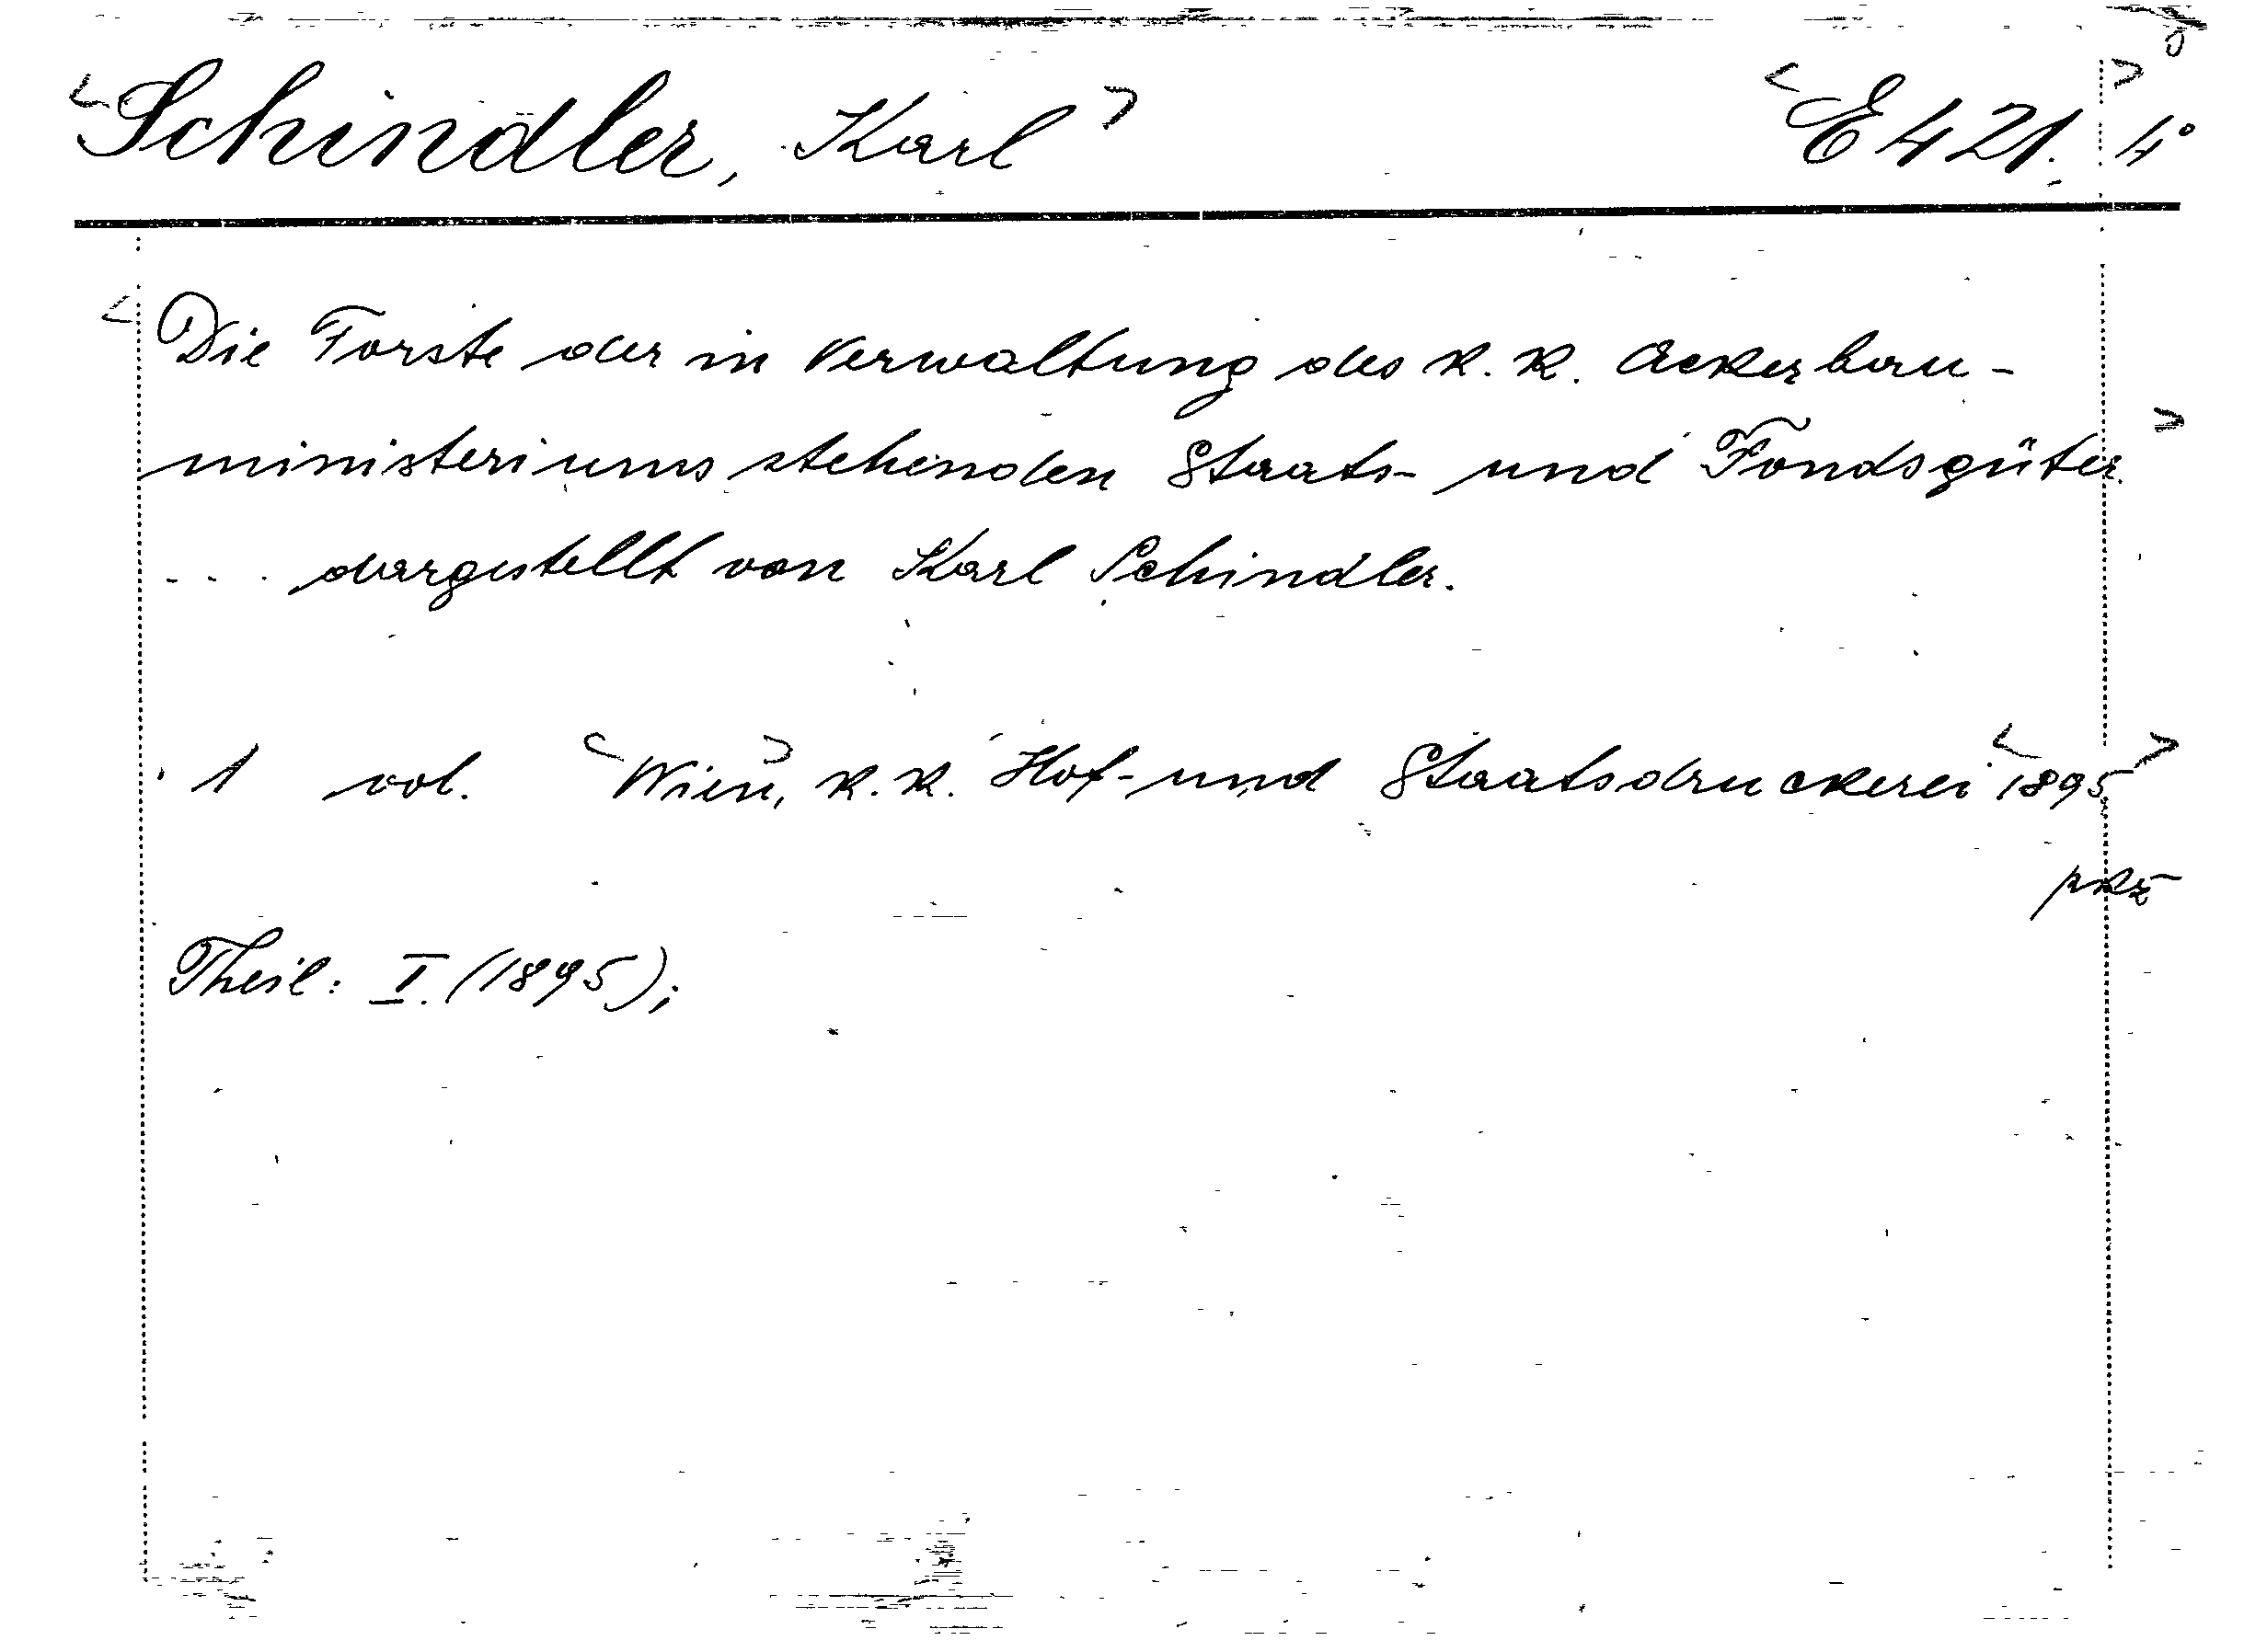 <Schindler, Karl> <E 421. 4°>
<Die Forste der in Verwaltung des k. k. Ackerbau-
ministeriums stehenden Staats- und Fondsgüter.>
... dargestellt von Karl Schindler.
1 vol. <Wien>, k. k. Hof- und Staatsdruckerei <1895>
Theil: I. (1895);